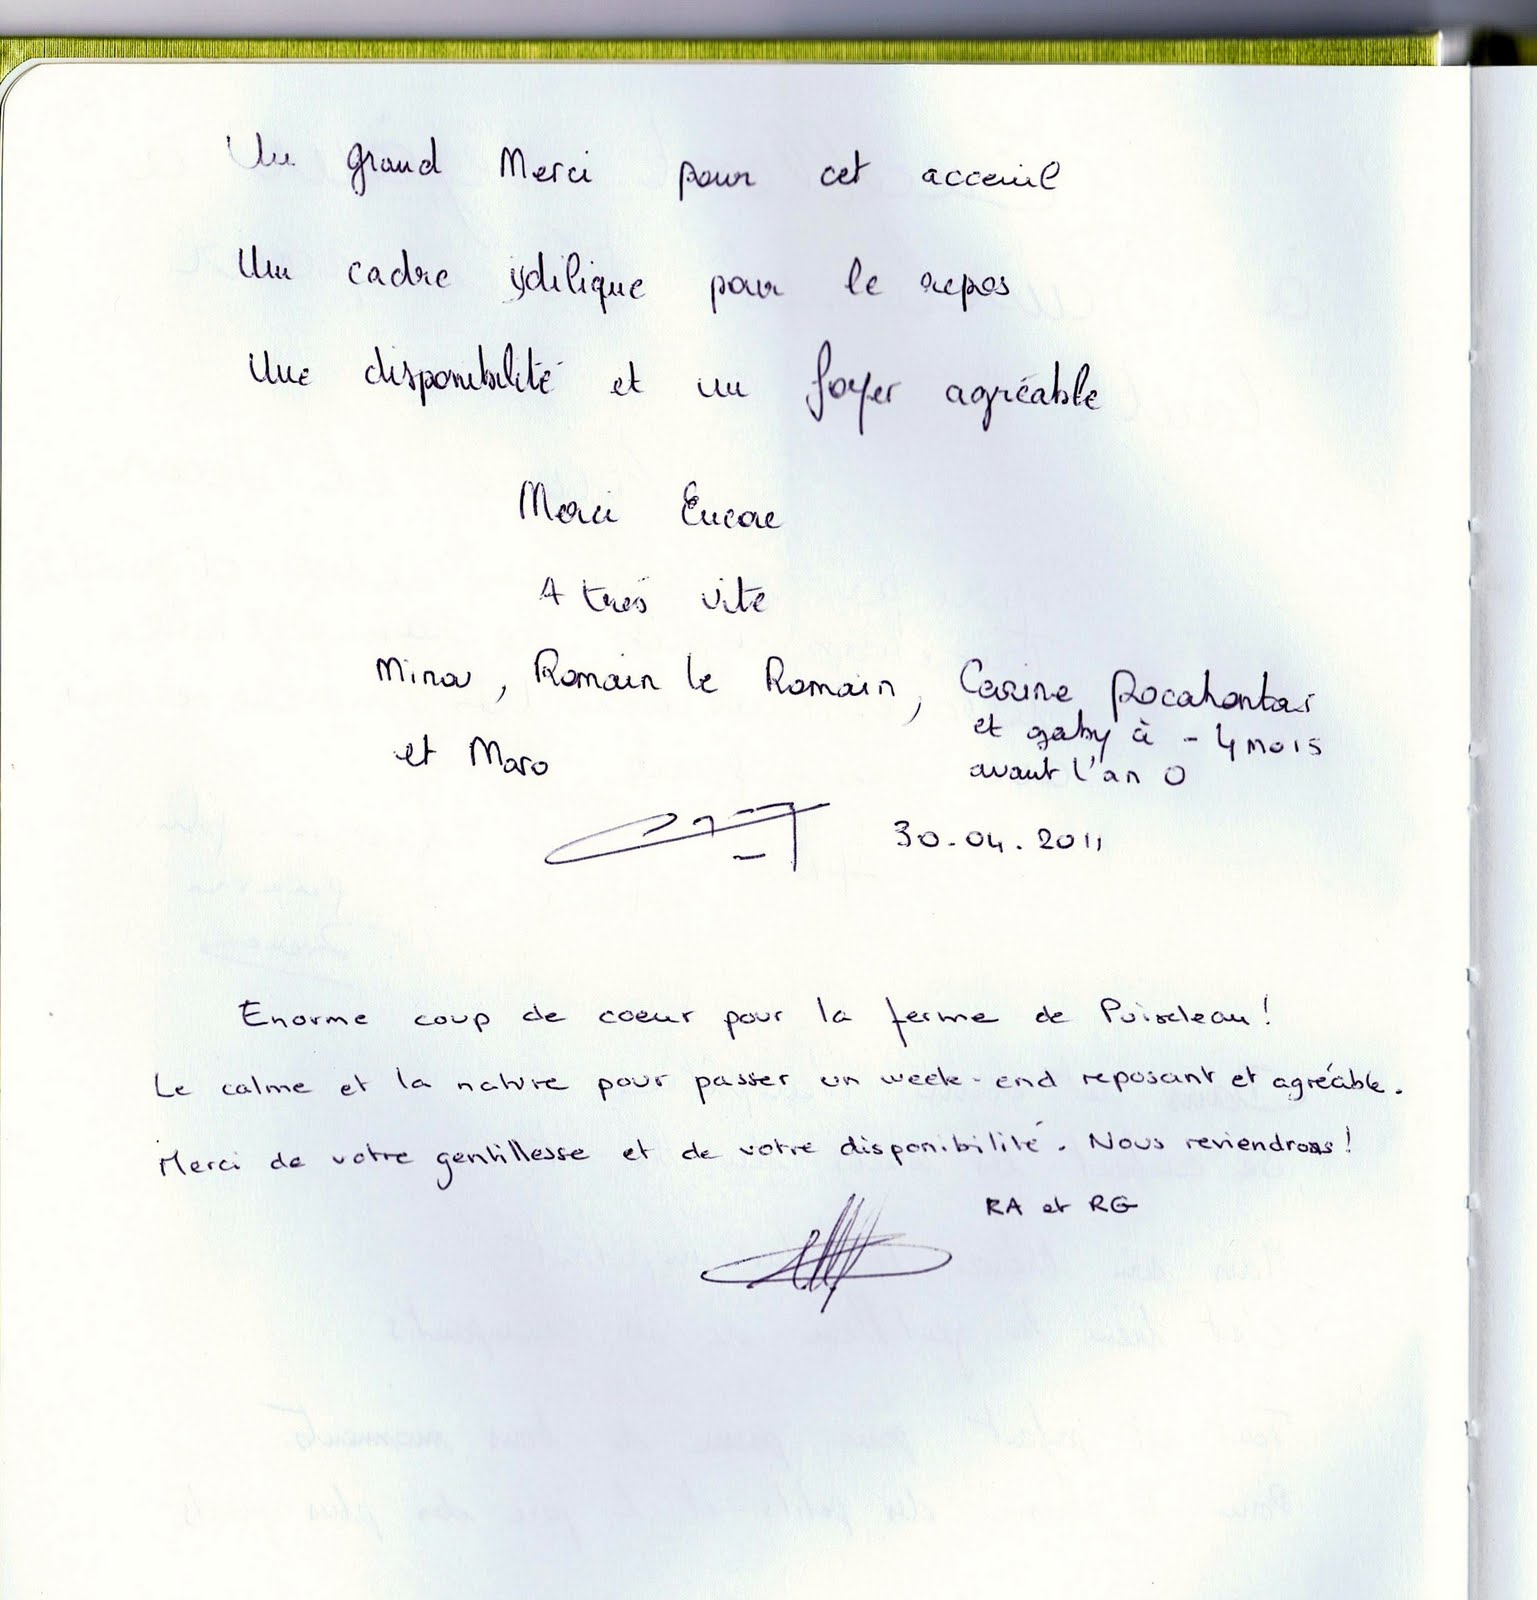 Un grand Merci pour cet acceuil
Un cadre ydilique pour le repos
Une disponibilité et un foyer agréable
Merci Encore
A très vite
Minou, Romain le Romain, Carine Pocahontas
et gaby à - 4 mois
avant l'an 0
et Maro
30.04.2011
Enorme coup de coeur pour la ferme de
Le calme et la nature pour passer un week-end reposant et agréable.
Merci de votre gentillesse et de votre disponibilité. Nous reviendrons!
RA et RG